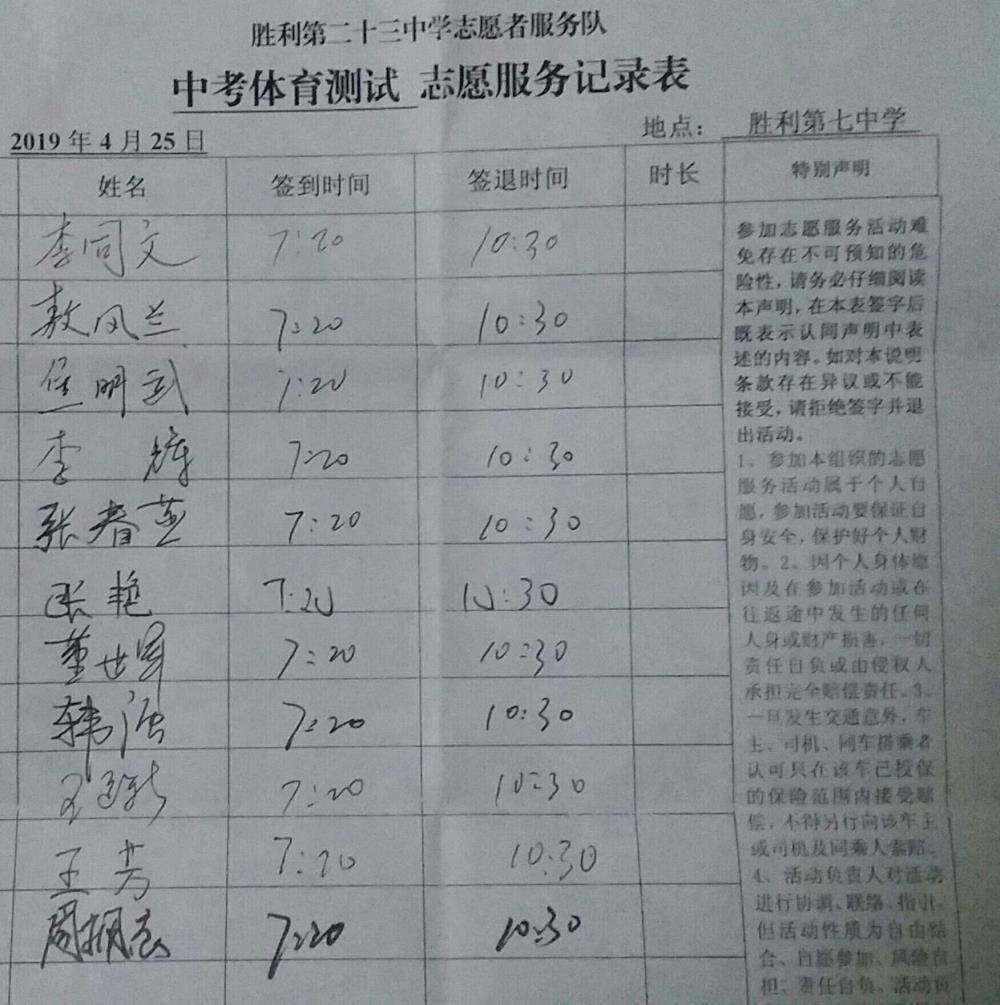 胜利第二十三中学志愿者服务队
中考体育测试 志愿服务记录表
2019 年 4 月 25 日
地点： 胜利第七中学
姓名 签到时间 签退时间 时长 特别声明
李同文 7:20 10:30
敖凤兰 7:20 10:30
焦明武 7:20 10:30
李 7:20 10:30
张春 7:20 10:30
张艳 7:20 10:30
董世军 7:20 10:30
韩 7:20 10:30
7:20 10:30
王芳 7:20 10:30
周 7:20 10:30
参加志愿服务活动难
免存在不可预知的危
险性，请务必仔细阅读
本声明，在本表签字后
既表示认同声明中表
述的内容。如对本说明
条款存在异议或不能
接受，请拒绝签字并退
出活动。
1、参加本组织的志愿
服务活动属于个人自
愿，参加活动要保证自
身安全，保护好个人财
物。2、因个人身体原
因及在参加活动或在
往返途中发生的任何
人身或财产损害，一切
责任自负或由侵权人
承担完全赔偿责任。3、
一旦发生交通意外，车
主、司机、同车搭乘者
认可只在该车已投保
的保险范围内接受赔
偿，不得另行向该车主
或司机及同乘人索赔。
4、活动负责人对活动
进行协调、联络、指引，
但活动性质为自由结
合、自愿参加、风险自
担、责任自负。活动负